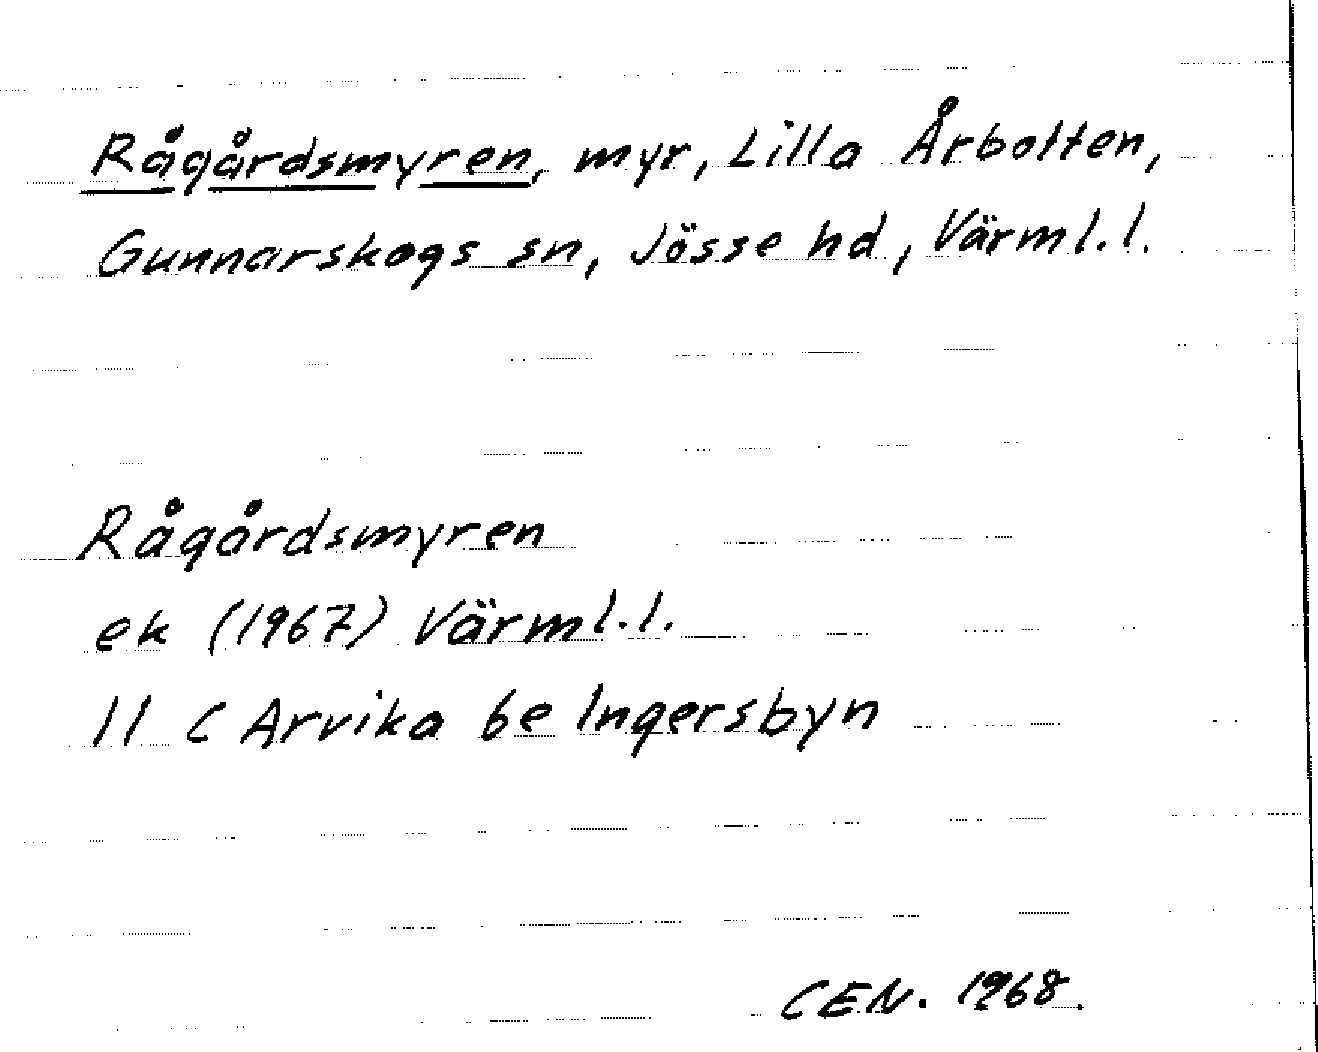 Rågårdsmyren, myr, Lilla Årbotten,
Gunnarskogs sn, Jösse hd, Värml.l.
Rågårdsmyren
ek (1967) Värml.l.
11 C Arvika 6e Ingersbyn
CEN. 1968.